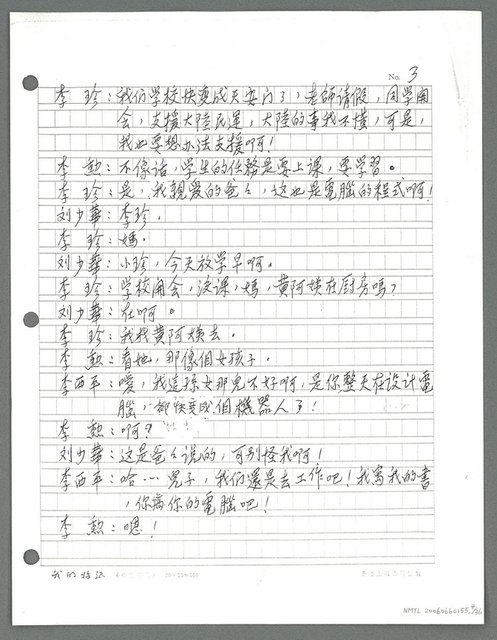 No. 3
李　珍：我们学校快变成天安门了，老師请假，同学開
会，支援大陸民運，大陸的事我不懂，可是，
我也要想办法支援啊！
李　勲：不像话，学生的任務是要上课，要学習。
李　珍：是，我親爱的爸々，这也是電腦的程式啊！
刘少華：李珍．
李　珍：媽．
刘少華：小珍，今天放学早啊。
李　珍：学校開会，没课，媽，黄阿姨在厨房嗎？
刘少華：在啊。
李　珍：我找黄阿姨去。
李　勲：看她，那像個女孩子．
李西平：嗳，我這孫女那兒不好啊，是你整天在设计電
腦，都快变成個機器人了！
李　勲：啊？
刘少華：这是爸々说的，可别怪我啊！
李西平：哈…兒子，我们還是去工作吧！我寫我的書
，你搞你的電腦吧！
李　勲：嗯！
我的
NMTL 20060660155, 4/26